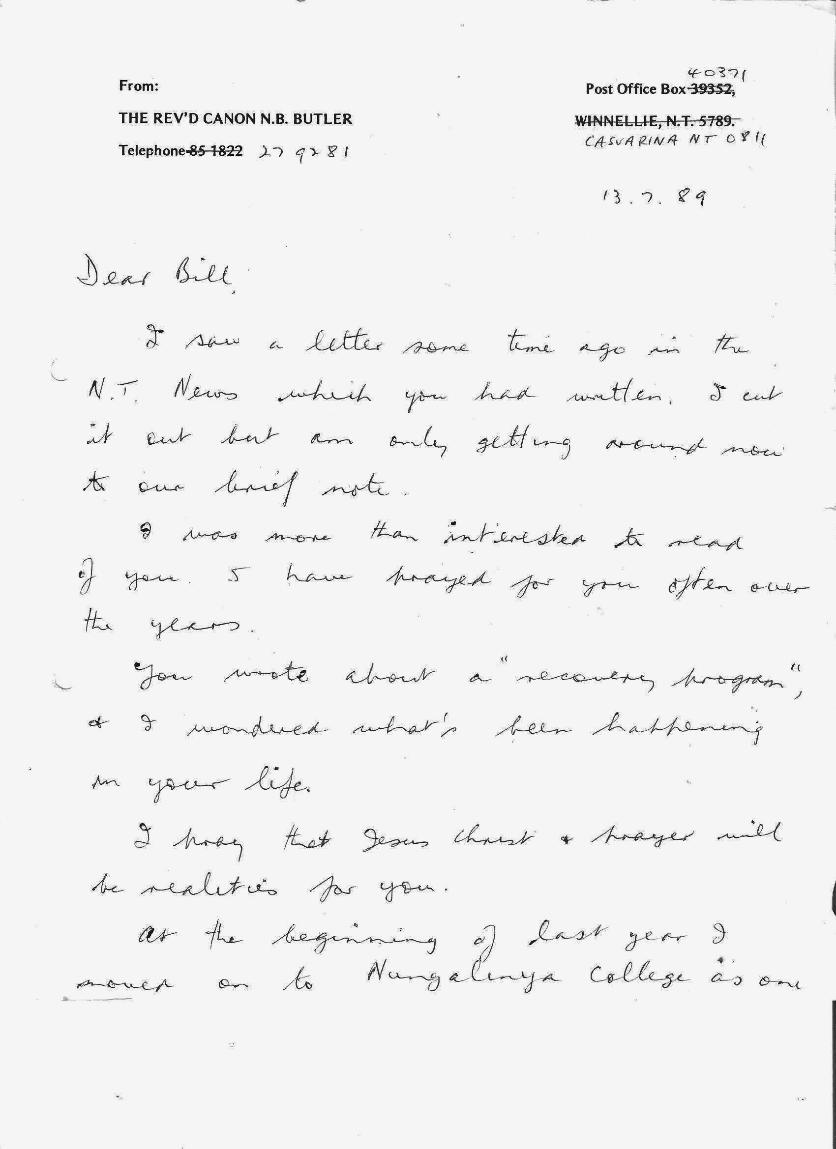 From:
40371
Post Office Box 39352,
THE REV'D CANON N.B. BUTLER
WINNELLIE, N.T. 5789.
CASUARINA NT 0811
Telephone 85 1822 27 9281
13.7.89
Dear Bill,
I saw a letter some time ago in the
N.T. News which you had written. I cut
it out but am only getting around now
to our brief note.
I was more than interested to read
of you. I have prayed for you often over
the years.
You wrote about a "recovery program",
& I wondered what's been happening
in your life.
I pray that Jesus Christ & prayer will
be realities for you.
At the beginning of last year I
moved on to Nungalinya College as one